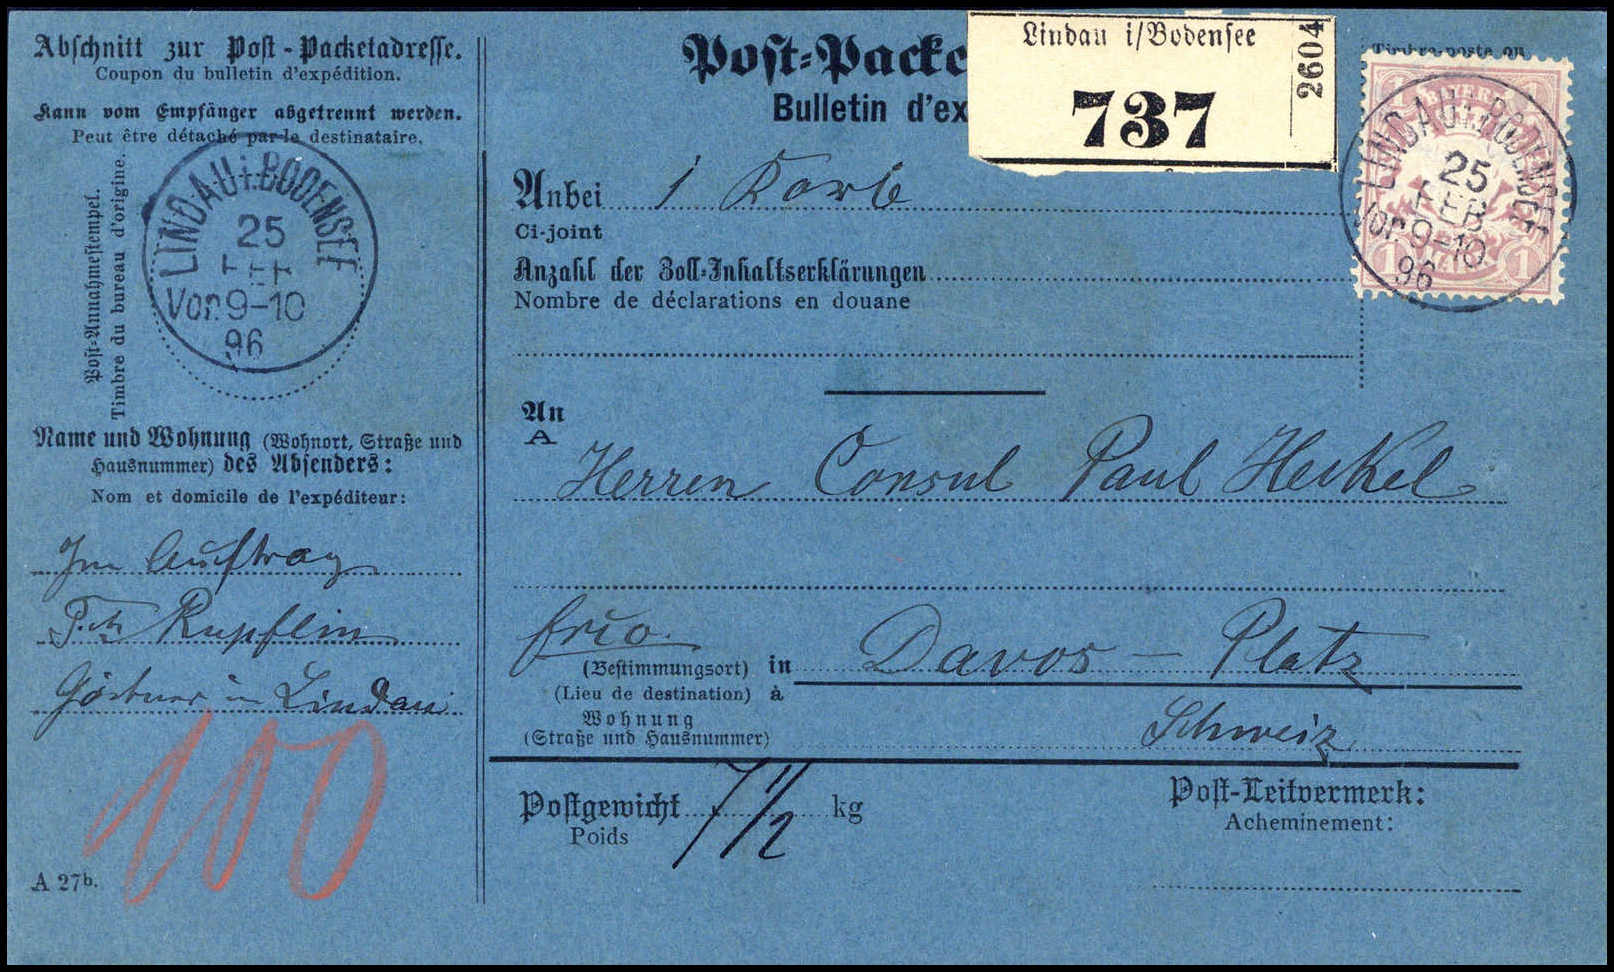 Abschnitt zur Post-Packetadresse.
Coupon du bulletin d'expédition.
Kann vom Empfänger abgetrennt werden.
Peut être détaché par le destinataire.
Post-Annahmestempel.
Timbre du bureau d'origine.
LINDAU i. BODENSEE
25
Vor. 9-10
96
Name und Wohnung (Wohnort, Straße und
Hausnummer) des Absenders:
Nom et domicile de l'expéditeur:
Im Auftrag
Rupflin
Gärtner in Lindau
100
A 27b.
Post-Packe
Bulletin d'ex
Lindau i/Bodensee
737
2604
Timbre-poste ou
BAYERN
1
1
1
1
LINDAU i. BODENSEE
25
FEB
Vor. 9-10
96
Anbei 1
Ci-joint
Anzahl der Zoll-Inhaltserklärungen
Nombre de déclarations en douane
An
A
Herren Consul Paul
frco.
(Bestimmungsort) in Davos - Platz
(Lieu de destination) à
Wohnung
(Straße und Hausnummer)
Schweiz
Postgewicht 7 1/2 kg
Poids
Post-Leitvermerk:
Acheminement: